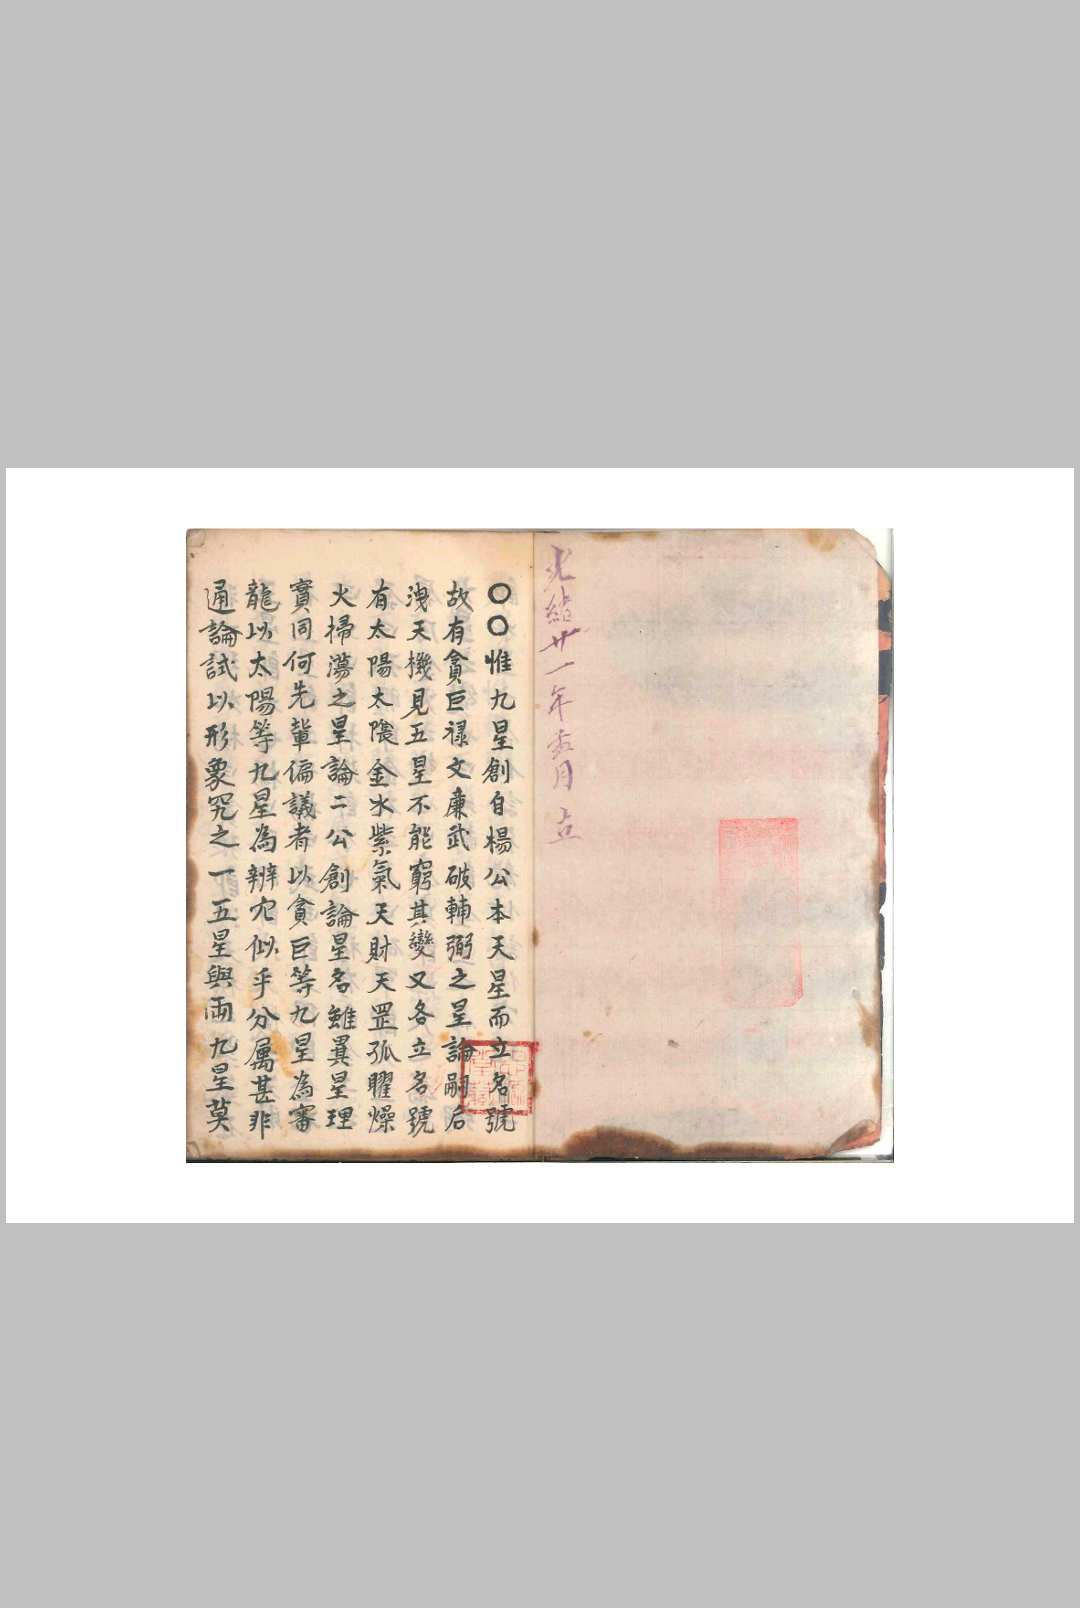 光緒廿一年 月 立
〇〇惟九星創自楊公本天星而立名號
故有貪巨祿文廉武破輔弼之星論嗣后
洩天機見五星不能窮其變又各立名號
有太陽太陰金水紫氣天財天罡孤曜燥
火掃蕩之星論二公創論星名雖異星理
實同何先輩偏議者以貪巨等九星為審
龍以太陽等九星為辨穴似乎分属甚非
通論試以形象究之一五星與兩九星莫